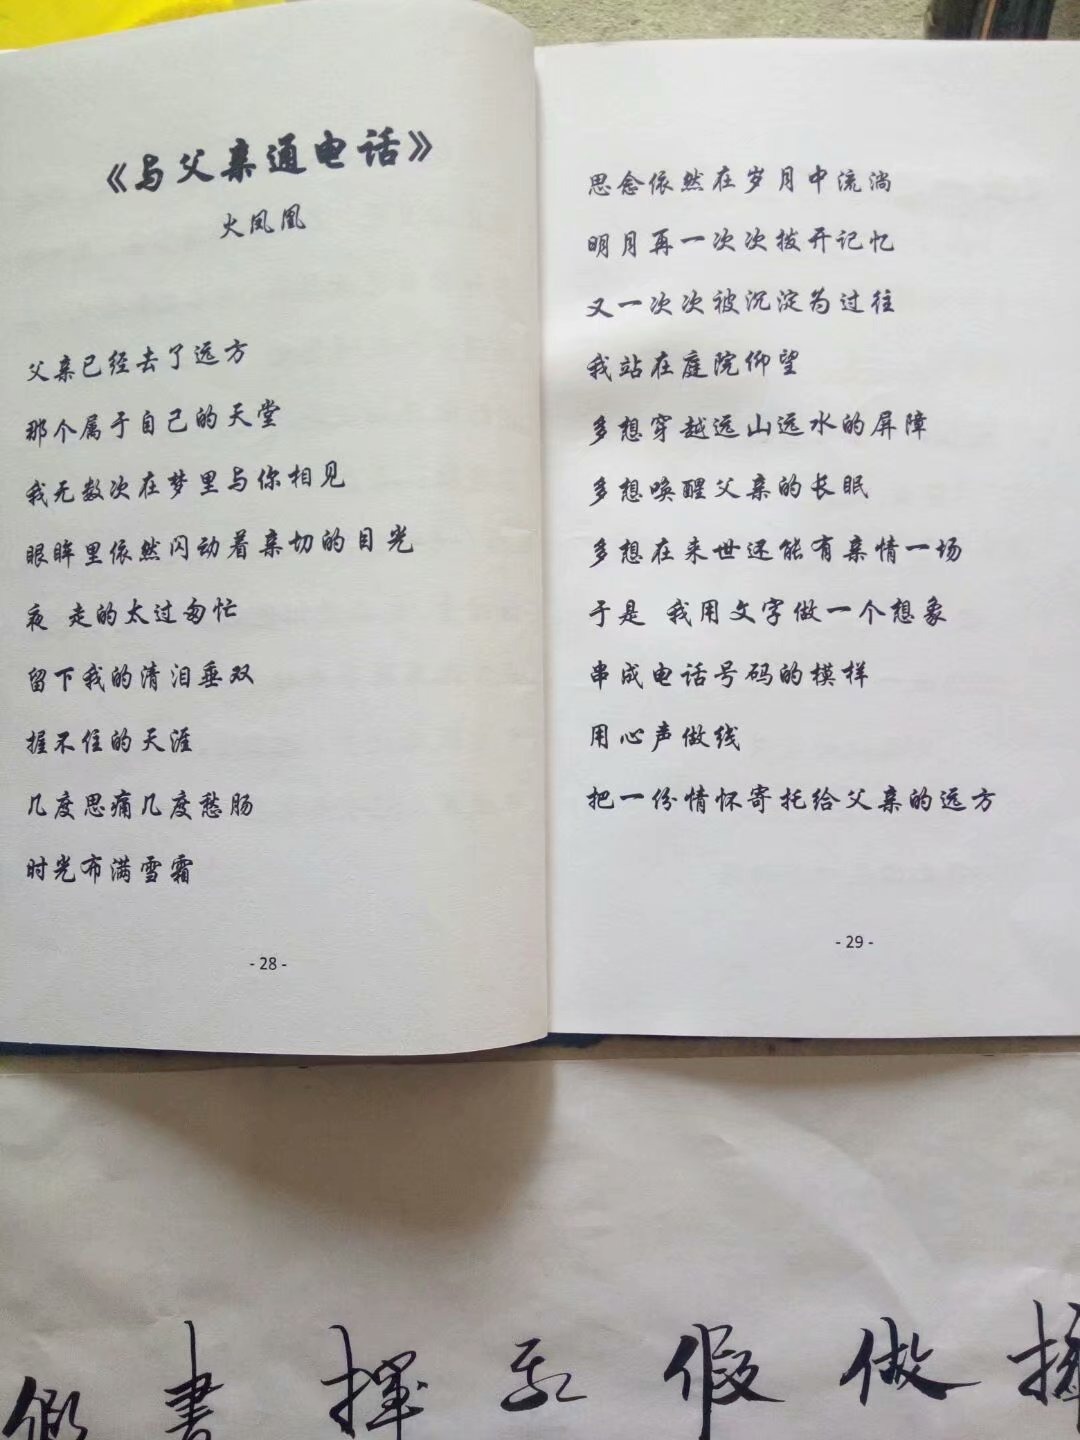 《与父亲通电话》
火凤凰
父亲已经去了远方
那个属于自己的天堂
我无数次在梦里与你相见
眼眸里依然闪动着亲切的目光
夜 走的太过匆忙
留下我的清泪垂双
握不住的天涯
几度思痛几度愁肠
时光布满雪霜
- 28 -
思念依然在岁月中流淌
明月再一次次拨开记忆
又一次次被沉淀为过往
我站在庭院仰望
多想穿越远山远水的屏障
多想唤醒父亲的长眠
多想在来世还能有亲情一场
于是 我用文字做一个想象
串成电话号码的模样
用心声做线
把一份情怀寄托给父亲的远方
- 29 -
書 揮 假 做